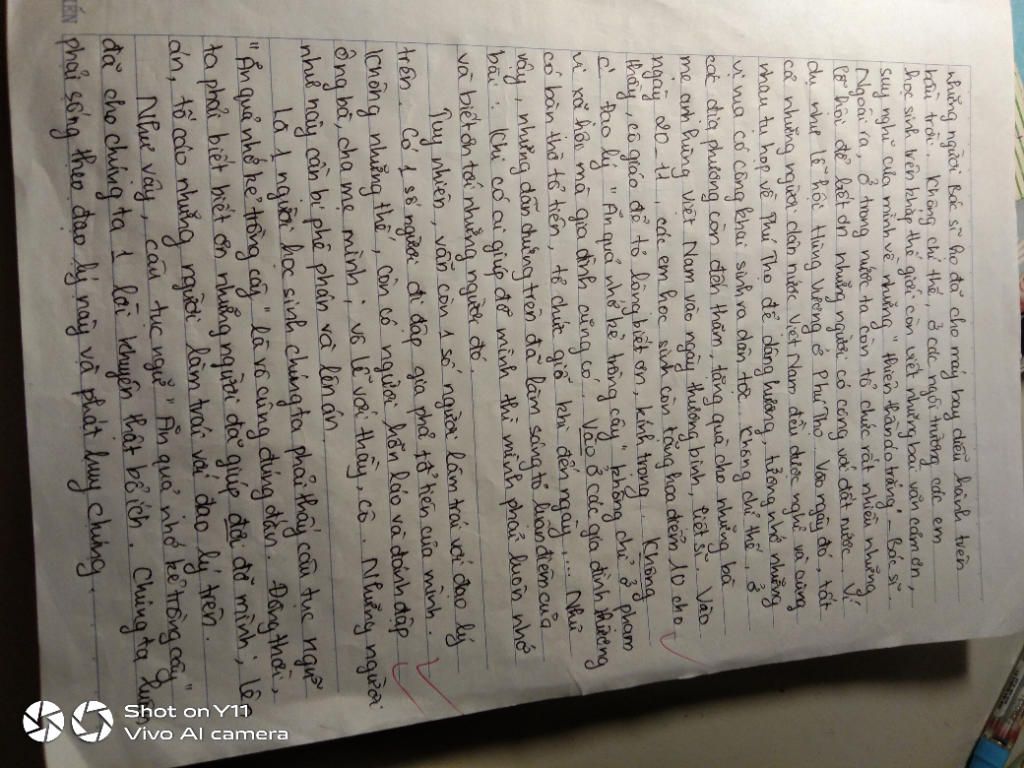 những người Bác sĩ họ đã cho máy bay diễu hành trên
bầu trời. Không chỉ thế, ở các ngôi trường các em
học sinh trên khắp thế giới còn viết những bài văn cảm ơn,
suy nghĩ của mình về những "thiên thần áo trắng" - Bác sĩ
Ngoài ra, ở trong nước ta còn tổ chức rất nhiều những
lễ hội để biết ơn những người có công với đất nước. Ví
dụ như lễ hội Hùng Vương ở Phú Thọ. Vào ngày đó, tất
cả những người dân nước Việt Nam đều được nghỉ và cùng
nhau tụ họp về Phú Thọ để dâng hương, tưởng nhớ những
vị vua có công khai sinh ra dân tộc. Không chỉ thế, ở
các địa phương còn đến thăm, tặng quà cho những bà
mẹ anh hùng Việt Nam vào ngày thương binh, liệt sĩ. Vào
ngày 20-11, các em học sinh còn tặng hoa điểm 10 cho
thầy, cô giáo để tỏ lòng biết ơn, kính trọng. Không
Đạo lý "Ăn quả nhớ kẻ trồng cây" không chỉ ở phạm
vi xã hội mà gia đình cũng có. Vào ở các gia đình thường
có bàn thờ tổ tiên, tổ chức giỗ khi đến ngày,... Như
vậy, những dẫn chứng trên đã làm sáng tỏ luận điểm của
bài: Khi có ai giúp đỡ mình thì mình phải luôn nhớ
và biết ơn tới những người đó.
Tuy nhiên, vẫn còn 1 số người làm trái với đạo lý
trên. Có 1 số người đi đập gia phả tổ tiên của mình.
Không những thế, còn có người hỗn láo và đánh đập
ông bà, cha mẹ mình; vô lễ với thầy, cô. Những người
như này cần bị phê phán và lên án.
Là 1 người học sinh chúng ta phải thấy câu tục ngữ
"Ăn quả nhớ kẻ trồng cây" là vô cùng đúng đắn. Đồng thời,
ta phải biết biết ơn những người đã giúp đỡ đỡ mình; lên
án, tố cáo những người làm trái với đạo lý trên.
Như vậy, câu tục ngữ "Ăn quả nhớ kẻ trồng cây"
đã cho chúng ta 1 lời khuyên thật bổ ích. Chúng ta luôn
phải sống theo đạo lý này và phát huy chúng.
Shot on Y11
Vivo AI camera